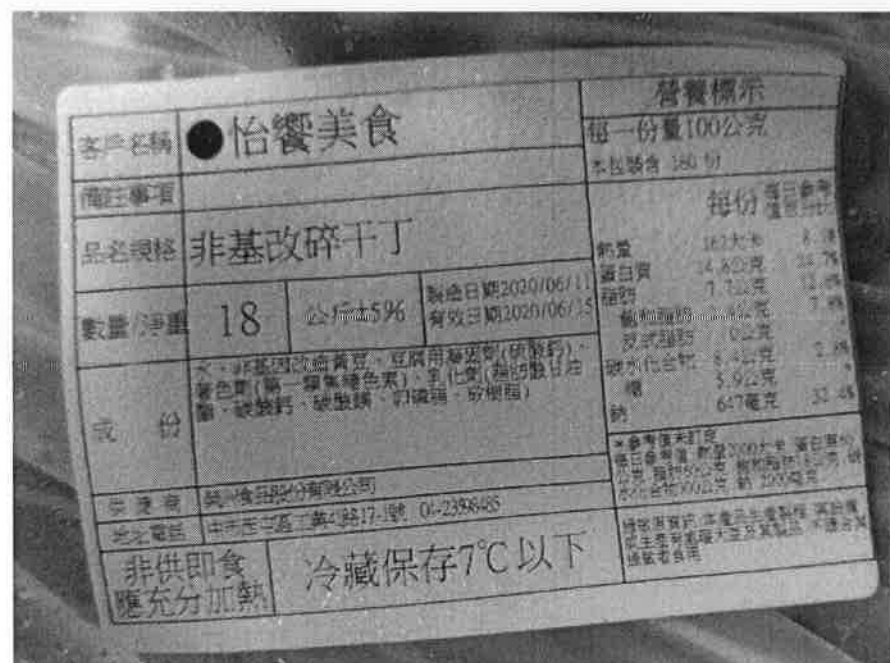 客戶名稱 怡饗美食
備註事項
品名規格 非基改碎干丁
數量/淨重 18 公斤±5% 製造日期2020/06/11
有效日期2020/06/15
成 份 水、非基因改造黃豆、豆腐用凝固劑(硫酸鈣)、
著色劑(第一類焦糖色素)、乳化劑(脂肪酸甘油
酯、碳酸鈣、碳酸鎂、卵磷脂、矽樹脂)
供應商 食品股份有限公司
地址電話
非供即食
應充分加熱
冷藏保存7℃以下
營養標示
每一份量100公克
本包裝含 180 份
每份 每日參考值百分比
熱量 162大卡
蛋白質 14.8公克
脂肪 7.7公克
飽和脂肪
反式脂肪 0公克
碳水化合物 2.8%
糖 5.9公克 *
鈉 647毫克 32.4%
*參考值未訂定
每日參考值:熱量2000大卡、蛋白質60
公克、脂肪60公克、飽和脂肪18公克、碳
水化合物300公克、鈉 2000毫克